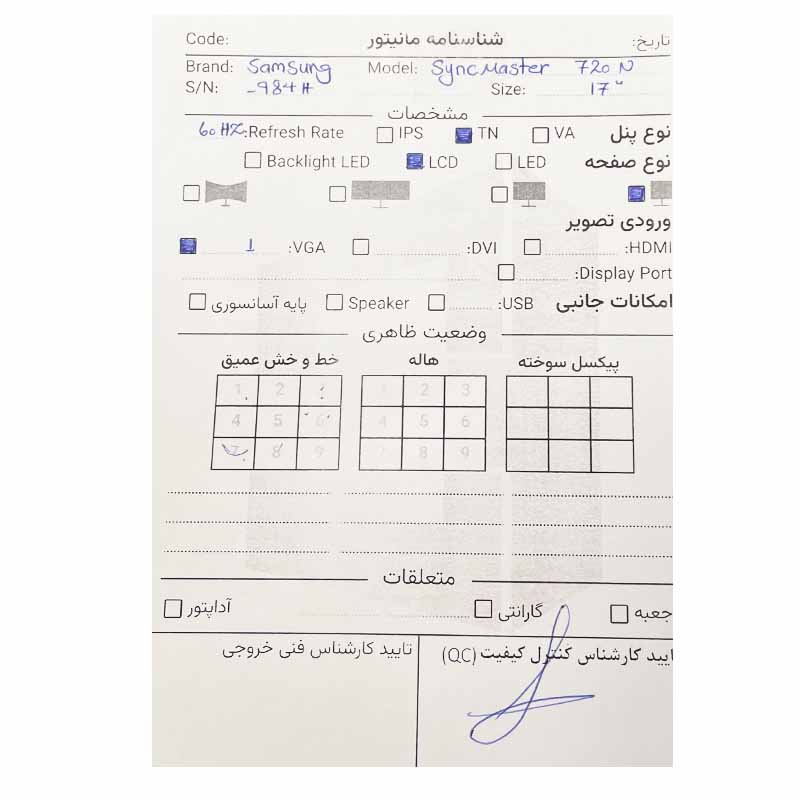 Code: شناسنامه مانیتور تاریخ:
Brand: Samsung Model: SyncMaster 720 N
S/N: -984H Size: 17"
مشخصات
نوع پنل VA TN IPS Refresh Rate: 60 HZ
نوع صفحه LED LCD Backlight LED
ورودی تصویر
HDMI: DVI: VGA: 1
Display Port:
امکانات جانبی USB: Speaker پایه آسانسوری
وضعیت ظاهری
پیکسل سوخته هاله خط و خش عمیق
1 2 3 1 2
4 5 6 4 5 6
7 8 9 7 8 9
متعلقات
جعبه گارانتی آداپتور
تایید کارشناس کنترل کیفیت (QC) تایید کارشناس فنی خروجی